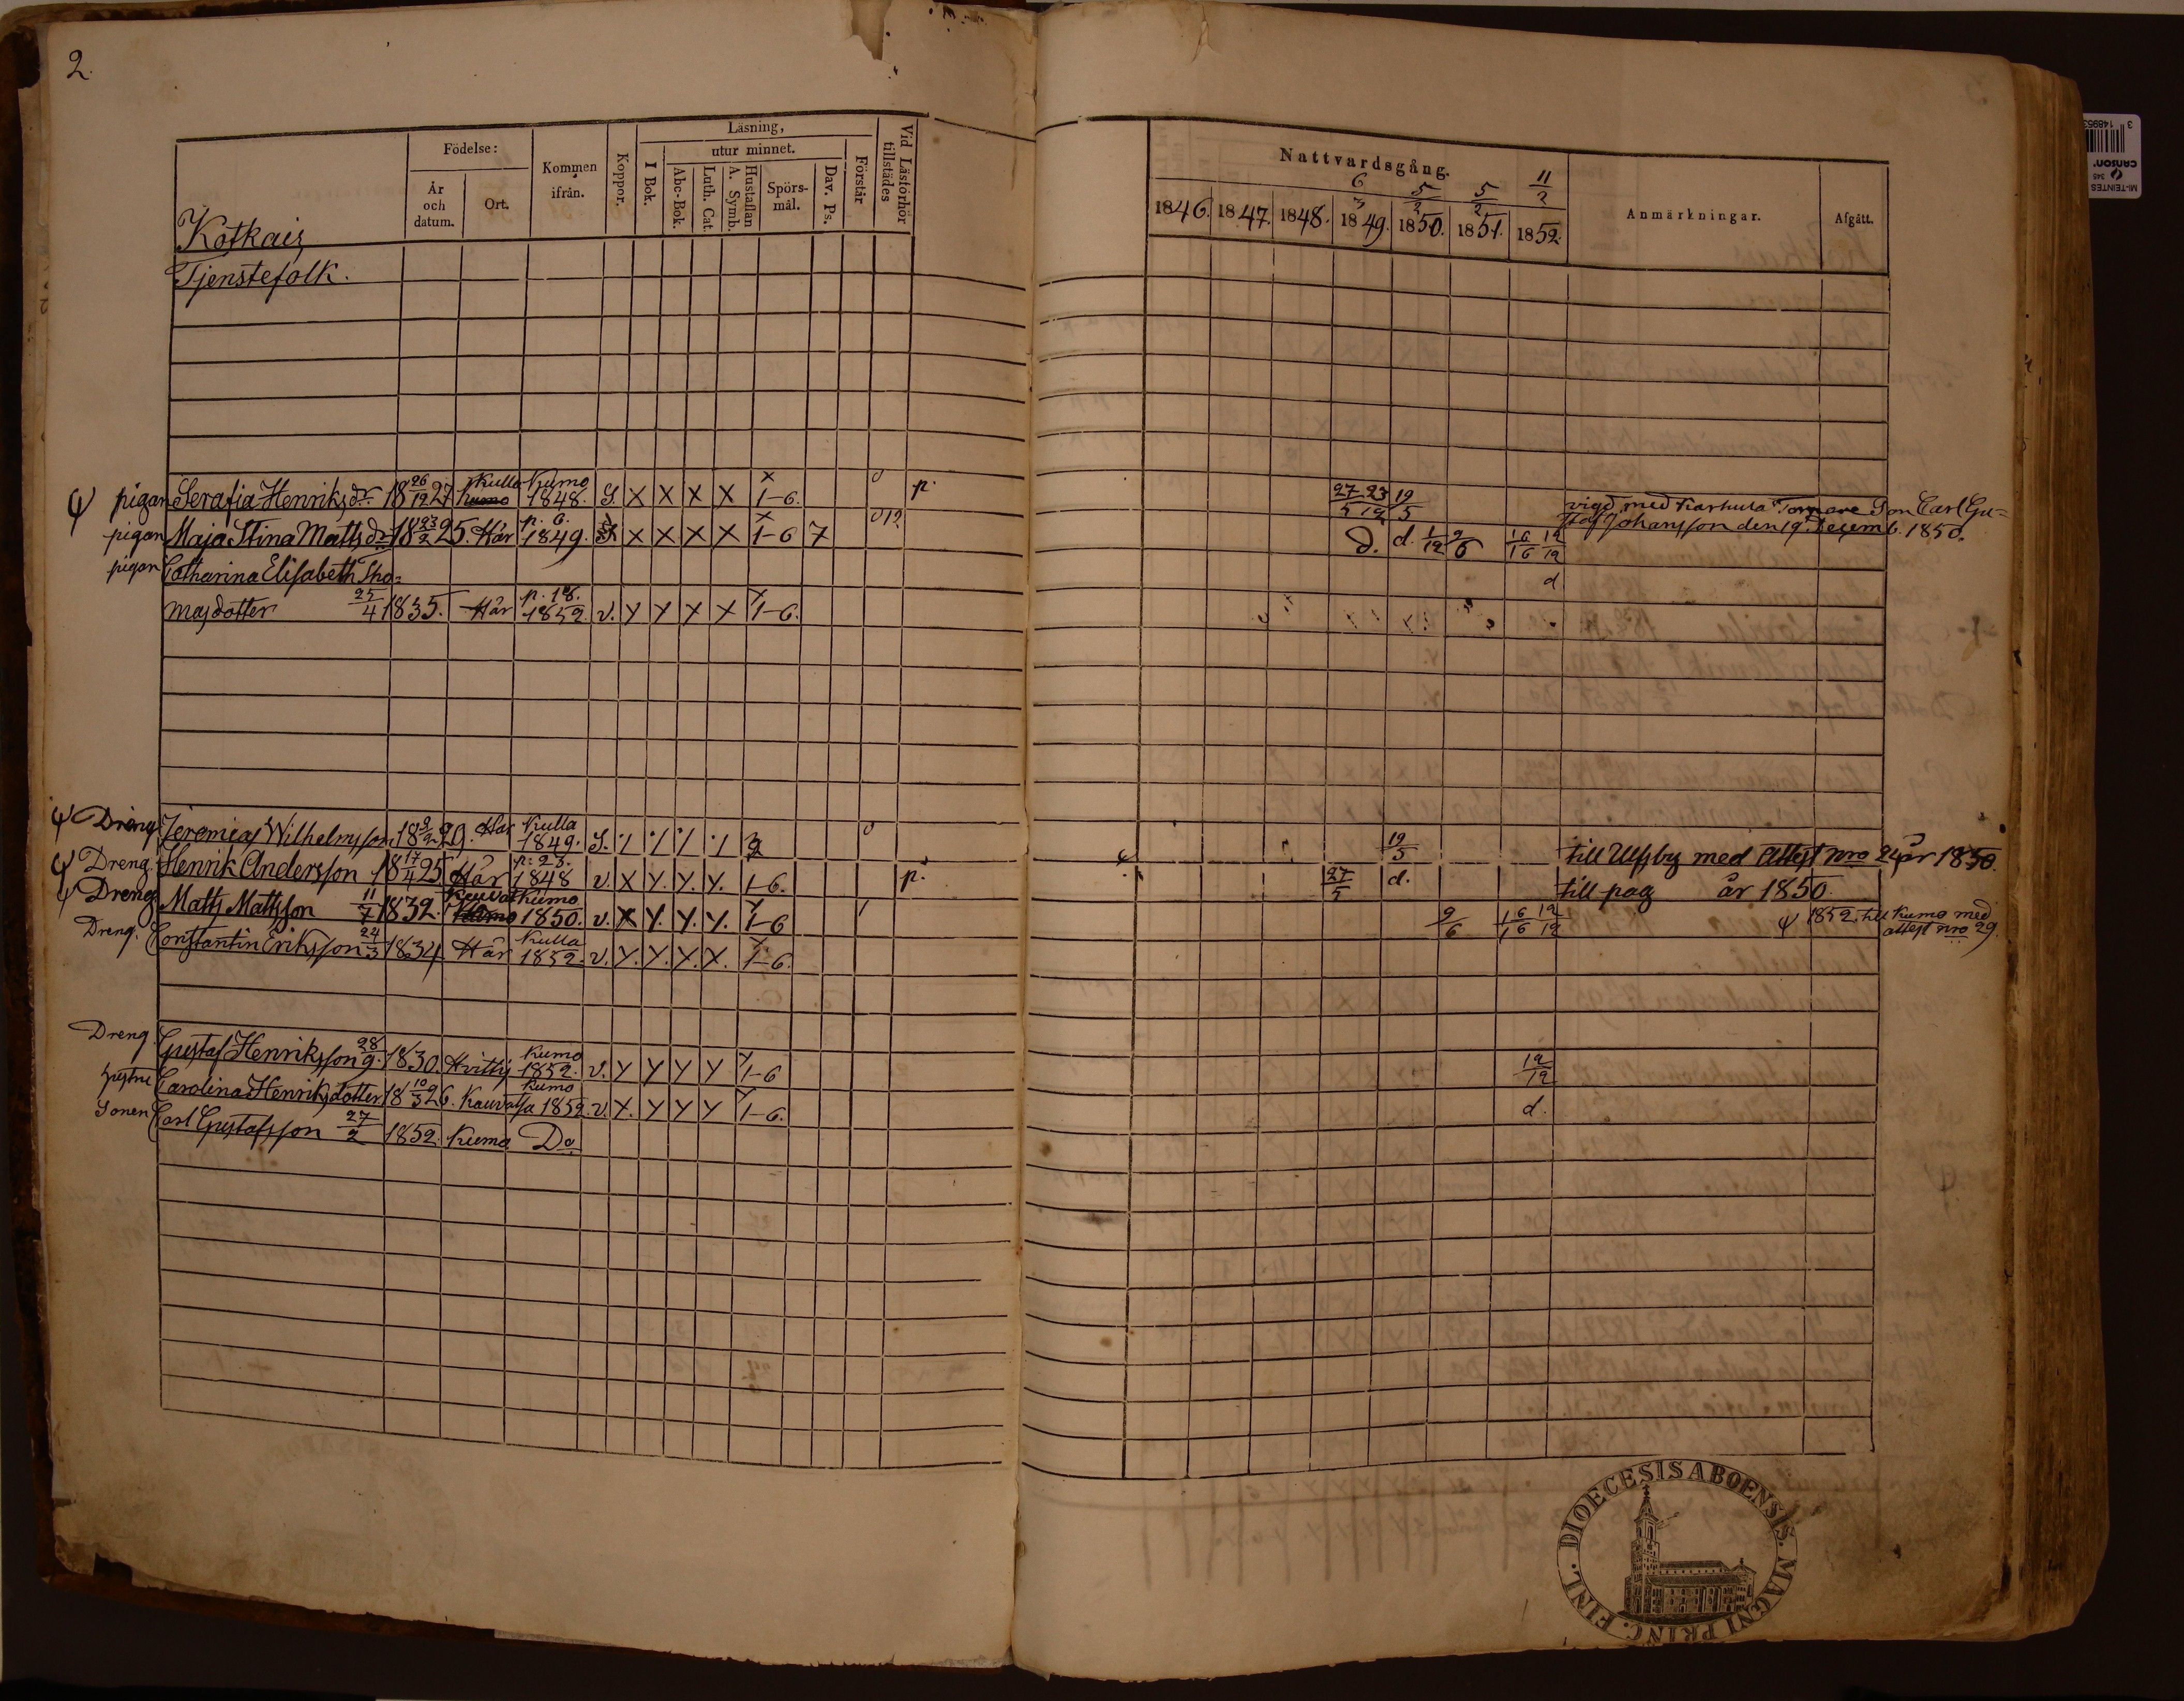 2.
Födelse:
År och datum.
Ort.
Kommen ifrån.
Koppor.
Läsning,
I Bok.
utur minnet.
Abc-Bok.
Luth. Cat.
Hustaflan A. Symb.
Spörsmål.
Dav. Ps.
Förstår
Vid Läsförhör tillstädes
Nattvardsgång.
6/5 5/2 5/2 11/2
1846. 1847. 1848. 1849. 1850. 1851. 1852.
Anmärkningar.
Afgått.
Kotkais
Tjenstefolk.
ψ pigan Serafia Henriksdr 18 26/12 27 Kulla Kumo Kumo 1848. S. X X X X X 1-6. 0 p. 27/5 23/12 19/5 vigd med Karhula Tornare Son Carl Gu=
staf Johansson den 19. Decemb. 1850.
pigan Maja Stina Mattsdr 18 23/2 25. Här p. 6. 1849. X X X X X 1-6 7 012 d. d. 1/12 2/6 16/16 12/12
pigan Catharina Elisabeth Tho= d
masdotter 25/4 1835. Här p. 18. 1852. v. Y Y X X Y 1-6.
ψ Dräng Jeremias Wilhelmsson 18 9/2 29. Här Kulla 1849. S. 0 19/5 till Ulfsby med Attest nro 24 år 1850.
ψ Dreng. Henrik Andersson 18 17/4 25 Här p: 28. 1848 v. X Y. Y. Y. 1-6. p. 27/5 d. till pag år 1850.
ψ Dreng Matts Mattsson 11/7 1832. Kauvat Kumo Kumo 1850. v. X Y. Y. Y. Y 1-6 1 2/6 16/16 12/12 ψ 1852. till Kumo med
attest nro 29.
Dreng. Constantin Eriksson 24/3 1834 Här Kulla 1852. v. Y. Y. Y. X. X 1-6.
Dreng. Gustaf Henriksson 28/9. 1830. Hvittis Kumo 1852. v. Y Y Y Y Y 1-6 12/12
hustru Carolina Henriksdotter 18 10/3 26. Kauvatsa Kumo 1852. v. Y. Y Y Y Y 1-6. d.
Sonen Carl Gustafsson 27/2 1852. Kumo Do
DIOECESIS ABOENSIS. MAGNI PRINC. FINL.
MI-TEINTES
canson
345